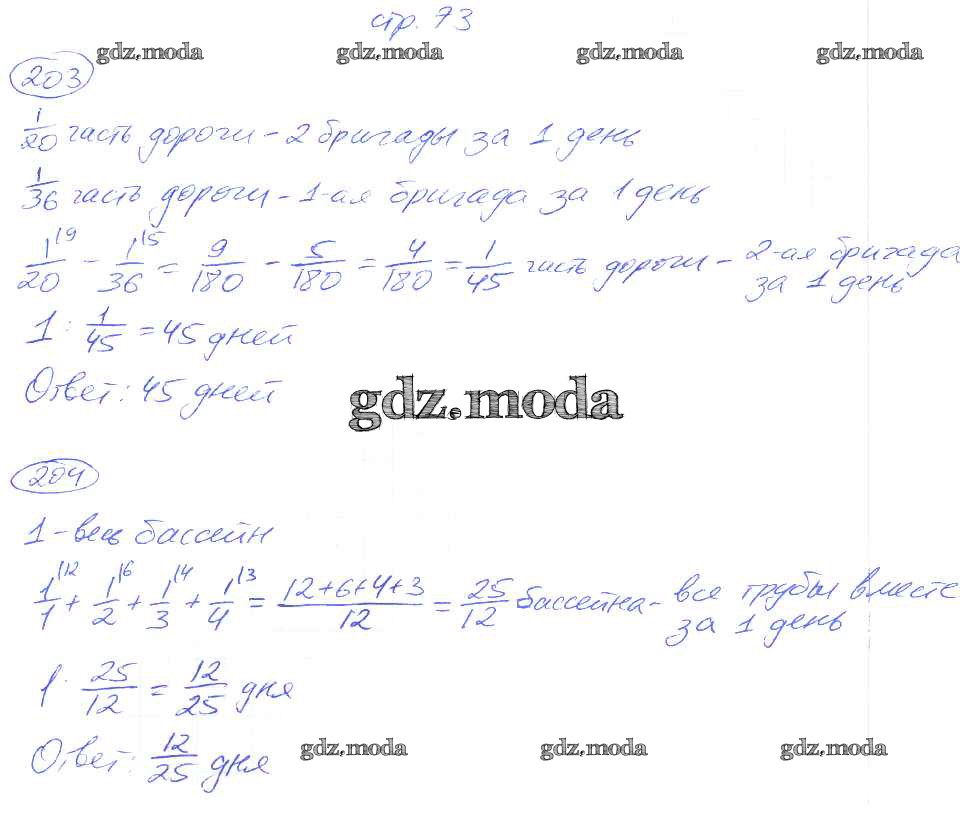 стр. 73
gdz.moda gdz.moda gdz.moda gdz.moda
203
1/20 часть дороги - 2 бригады за 1 день
1/36 часть дороги - 1-ая бригада за 1 день
1/20 |9 - 1/36 |5 = 9/180 - 5/180 = 4/180 = 1/45 часть дороги - 2-ая бригада
за 1 день
1 : 1/45 = 45 дней
Ответ: 45 дней
gdz.moda
204
1 - весь бассейн
1/1 |12 + 1/2 |6 + 1/3 |4 + 1/4 |3 = 12+6+4+3/12 = 25/12 бассейна - все трубы вместе
за 1 день
1 : 25/12 = 12/25 дня
Ответ: 12/25 дня
gdz.moda gdz.moda gdz.moda